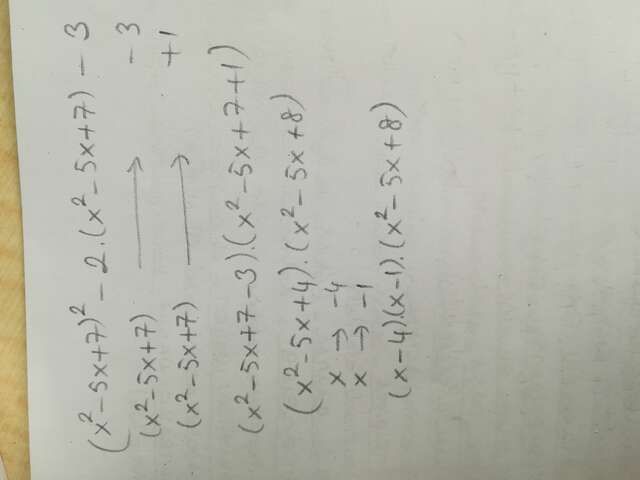 (x²-5x+7)² - 2.(x²-5x+7) - 3
(x²-5x+7) → -3
(x²-5x+7) → +1
(x²-5x+7-3).(x²-5x+7+1)
(x²-5x+4).(x²-5x+8)
x → -4
x → -1
(x-4).(x-1).(x²-5x+8)